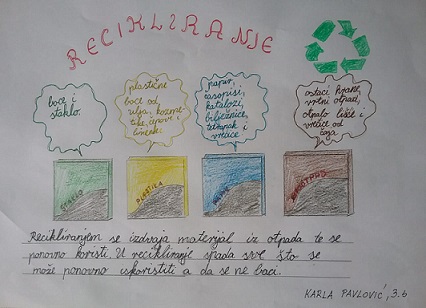 RECIKLIRANJE
boce i
staklo.
plastične
boce od
ulja, kozme-
tike, čepovi i
papir,
časopisi,
katalozi,
bilježnice,
vrećice
ostaci hrane,
vrtni otpad,
otpalo lišće i
vrećice od
čaja.
STAKLO
PLASTIKA
PAPIR
BIOOTPAD
Recikliranjem se izdvaja materijal iz otpada te se
ponovno koristi. U recikliranje spada sve što se
može ponovno iskoristiti a da se ne baci.
KARLA PAVLOVIĆ, 3.b